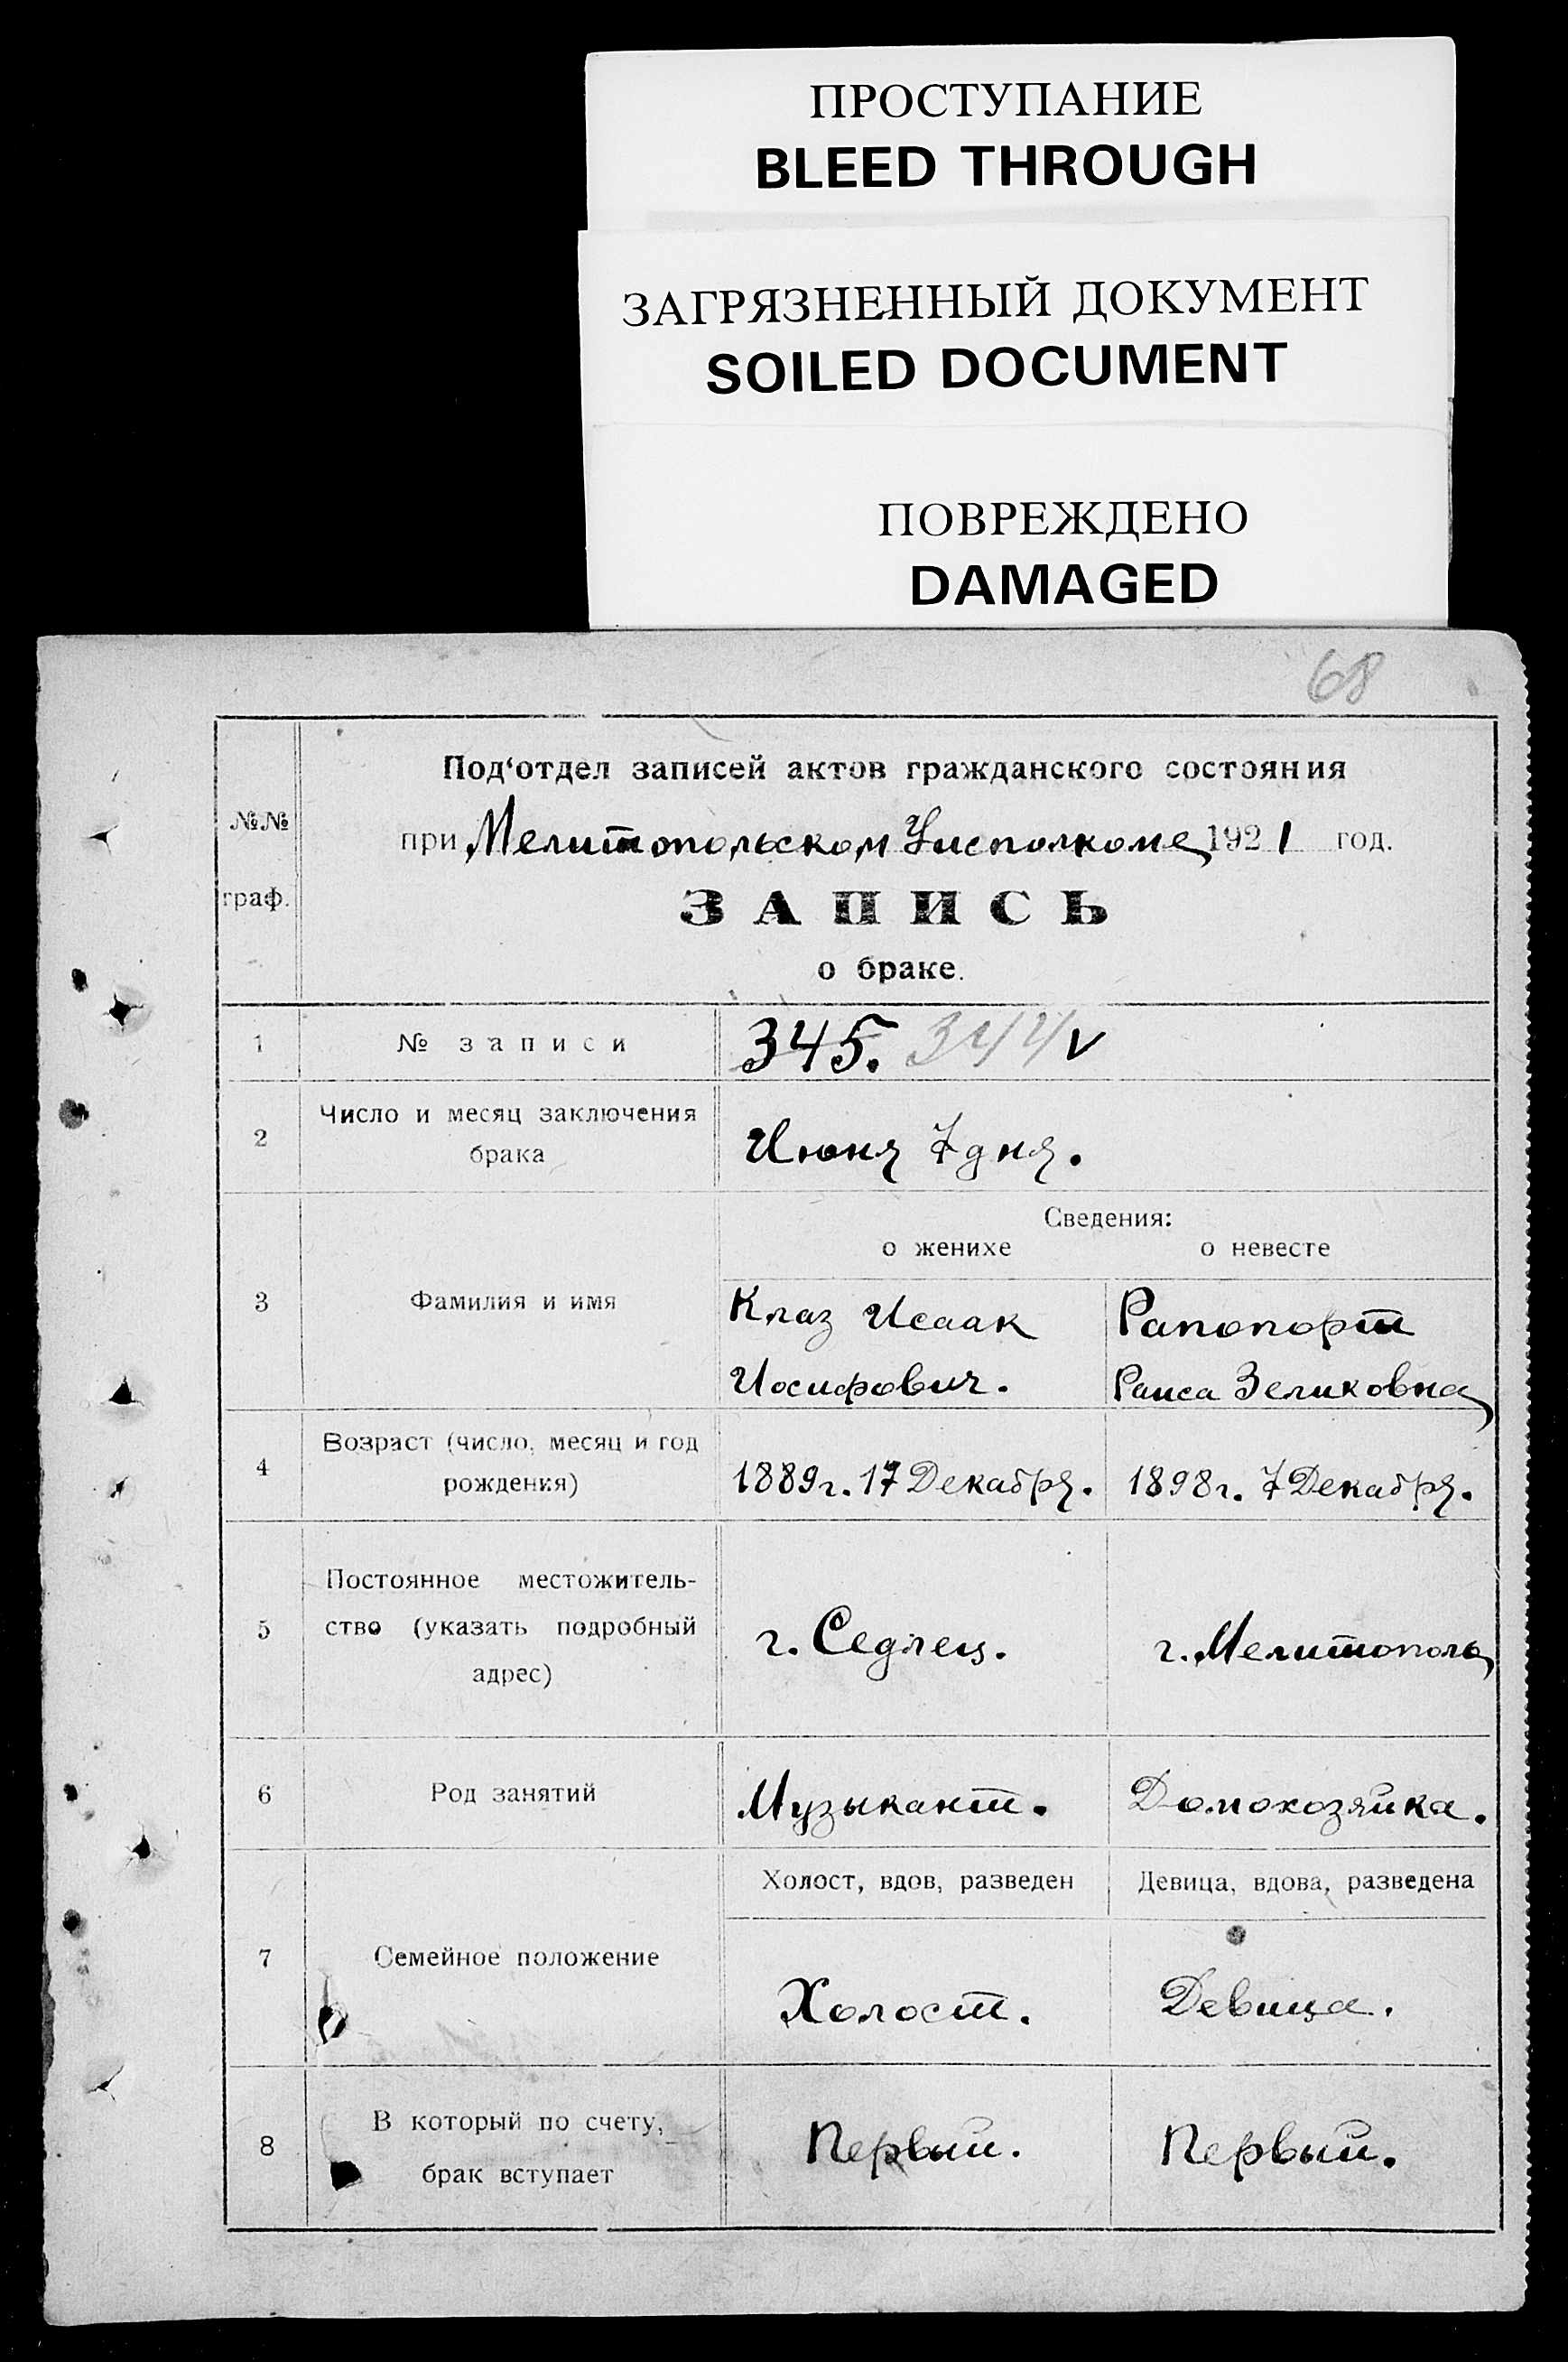 ПРОСТУПАНИЕ
BLEED THROUGH
ЗАГРЯЗНЕННЫЙ ДОКУМЕНТ
SOILED DOCUMENT
ПОВРЕЖДЕНО
DAMAGED
68
№№
граф.
Под‘отдел записей актов гражданского состояния
при Мелитопольском Уисполкоме 1921 год.
ЗАПИСЬ
о браке.
1
№ записи
345. 344 v
2
Число и месяц заключения
брака
Июня 7 дня.
Сведения:
о женихе
о невесте
3
Фамилия и имя
Клаз Исаак
Иосифович.
Рапопорт
Раиса Зеликовна
4
Возраст (число, месяц и год
рождения)
1889 г. 17 Декабря.
1898 г. 7 Декабря.
5
Постоянное местожитель-
ство (указать подробный
адрес)
г. Седлец.
г. Мелитополь
6
Род занятий
Музыкант.
Домохозяйка.
7
Семейное положение
Холост, вдов, разведен
Девица, вдова, разведена
Холост.
Девица.
8
В который по счету,
брак вступает
Первый.
Первый.